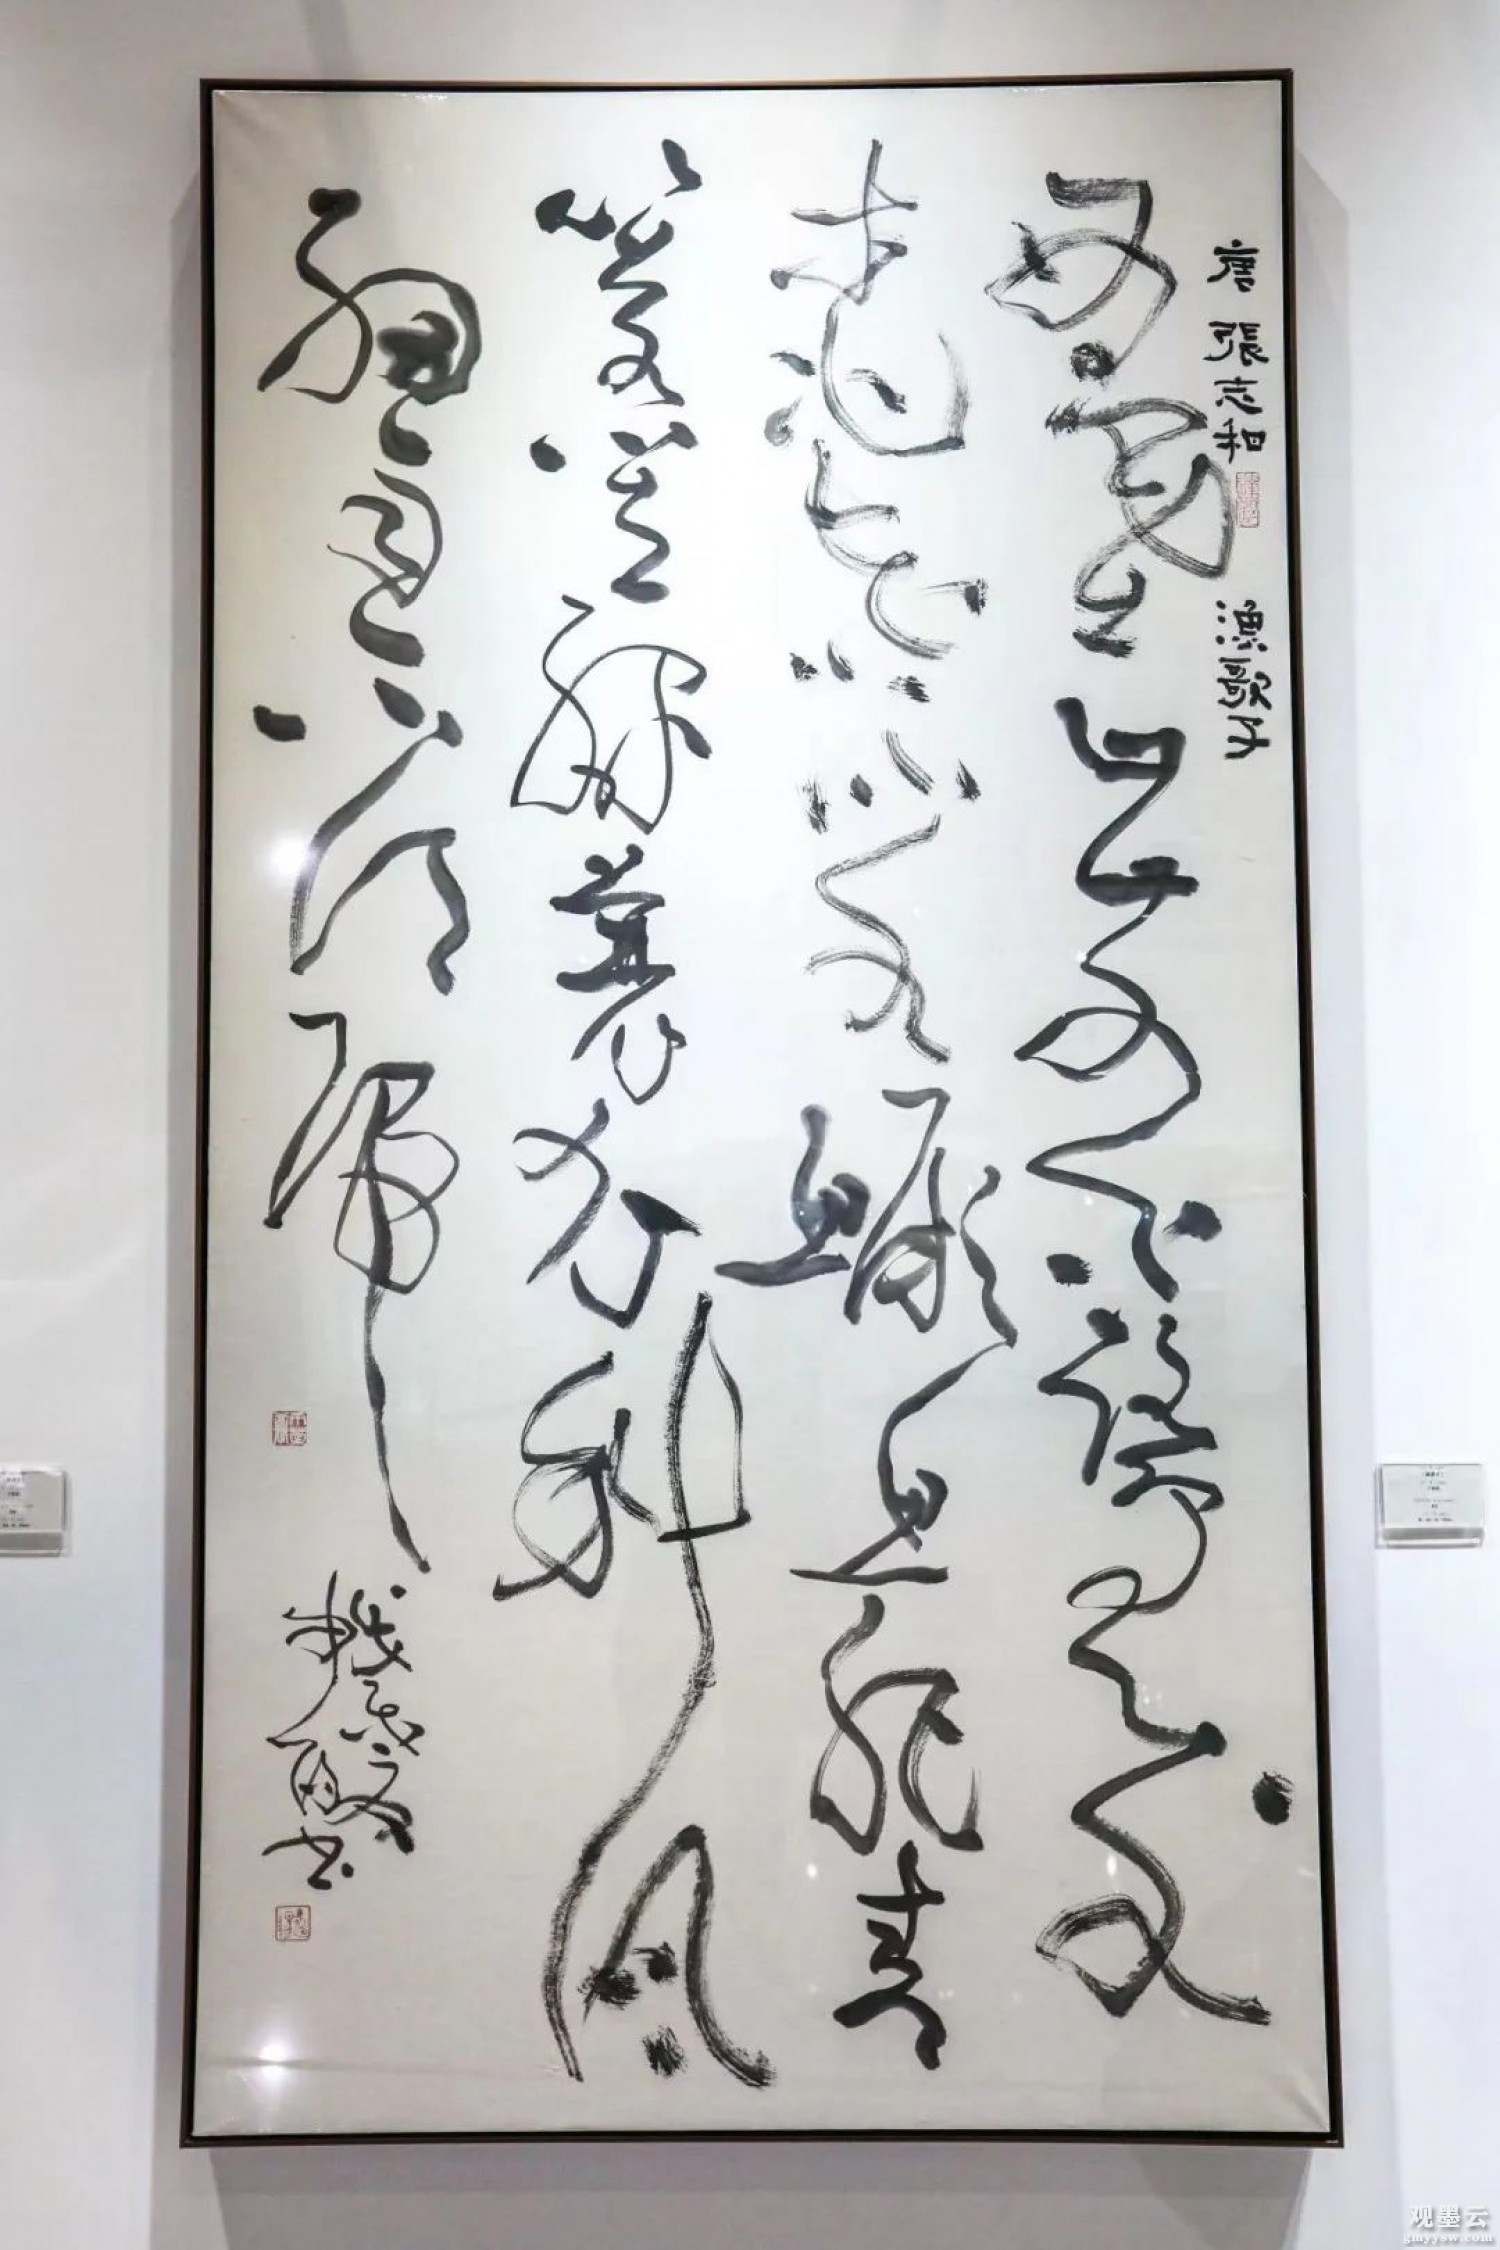 唐 張志和 漁歌子
西塞山前白鷺飛
桃花流水鱖魚肥青
箬笠綠蓑衣斜風
細雨不須歸
书
观墨云
gmyysw.com